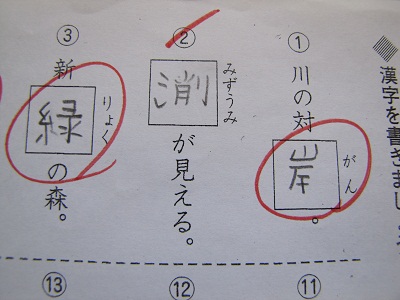 ◆漢字を書きまし
① 川の対岸。
がん
② が見える。
みずうみ
③ 新緑の森。
りょく
⑪
⑫
⑬